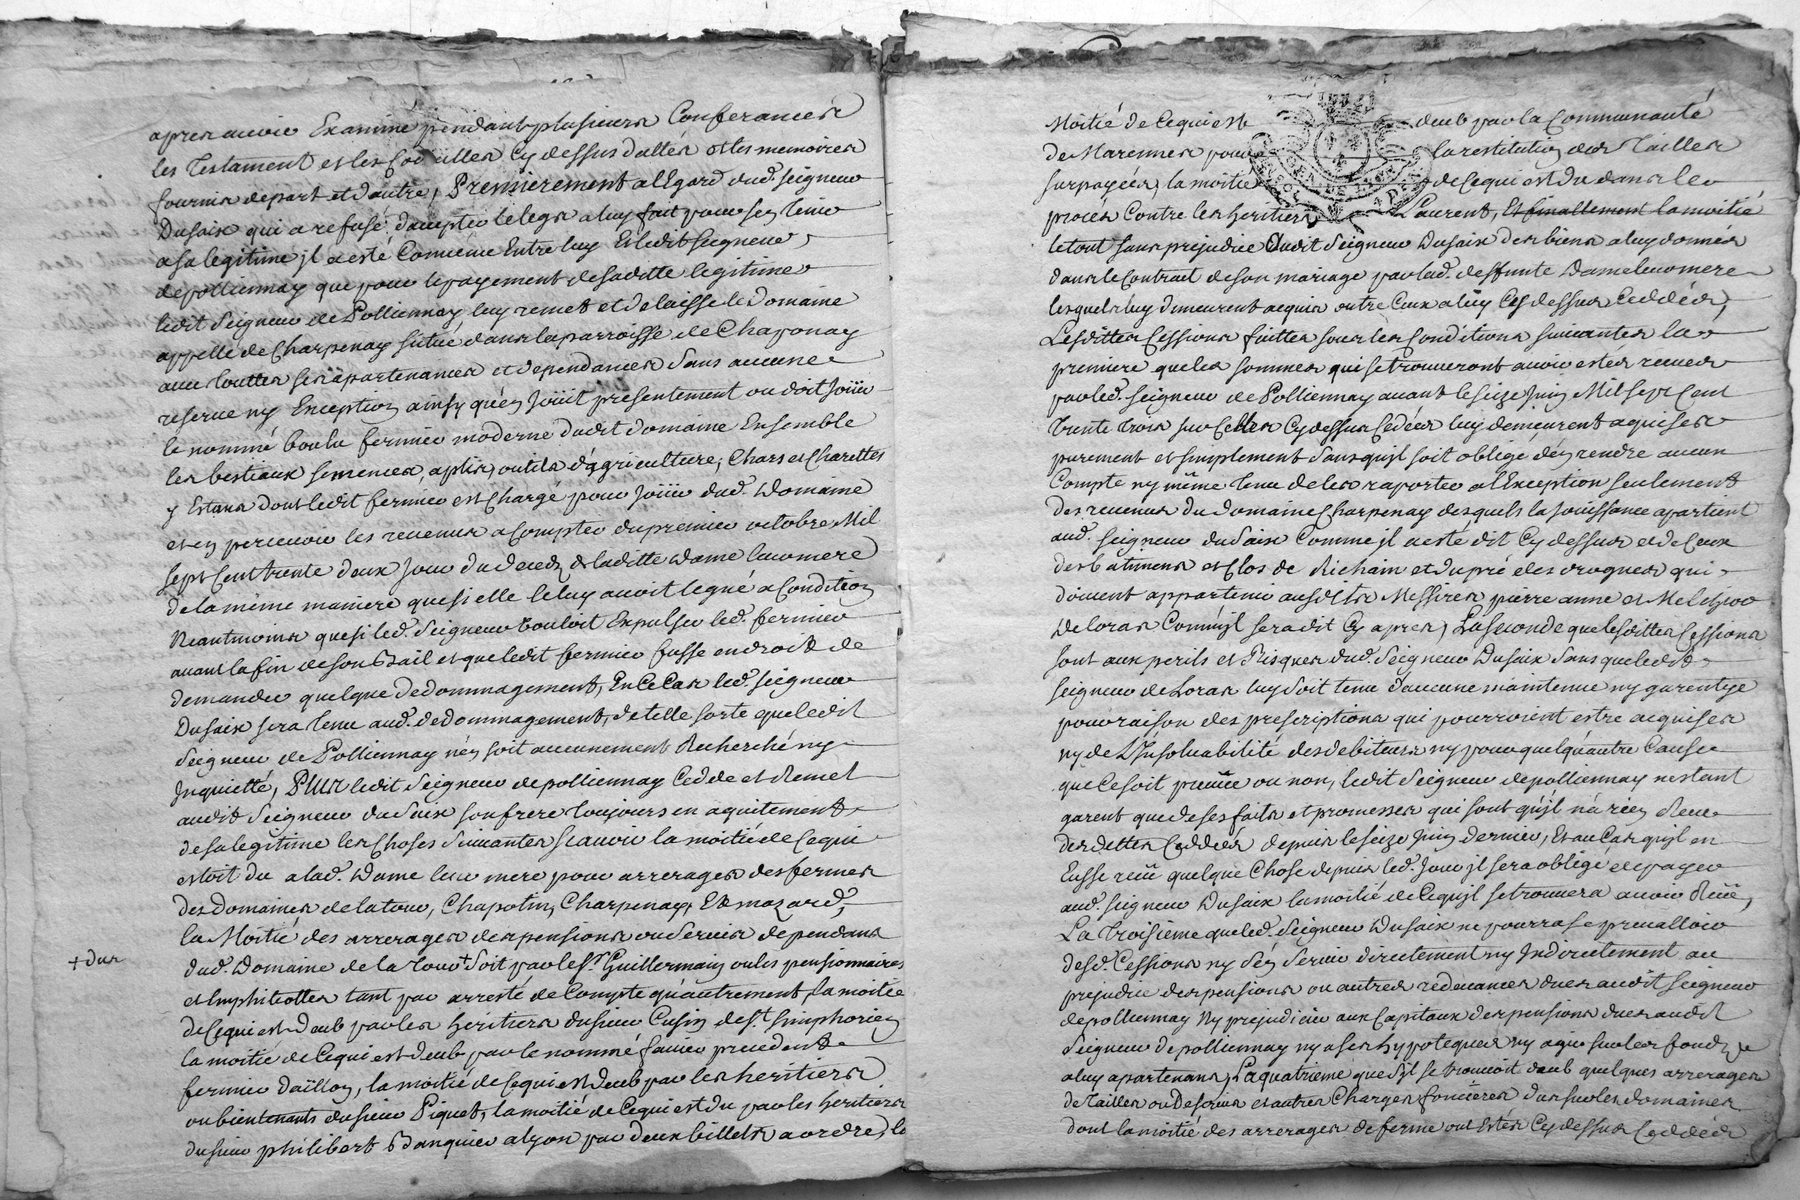 apres avoir Examiné pendant plusieurs Conferances
les Testament et les Codicilles Cy dessus dattés et les memoires
fournis de part et d'autre, Premierement a l'Egard dud. seigneur
Dusaix qui a refusé d'accepter le legs a luy fait pour s'en tenir
a sa legitime jl a esté Convenu Entre luy Et ledit seigneur
de pollionnay que pour le payement de sa ditte legitime
ledit Seigneur de Pollionnay luy remet et delaisse le Domaine
appellé de Charpenay situé dans la parroisse de Chaponay
avec touttes ses apartenances et dependances Sans aucune
reserve ny Exception ainsy qu'en Joüit presentement ou doit Joüir
le nommé boulu fermier moderne dudit domaine Ensemble
les bestiaux semences, aplis, outils d'agriculture, Chars et Charettes
y Estans dont ledit fermier est Chargé pour Joüir dud. Domaine
et en percevoir les revenus a Compter du premier octobre Mil
sept Cent trente deux Jour du decedz de laditte Dame leur mere
de la même maniere que si elle le luy avoit legué a Condition
Neantmoins que si led. Seigneur Vouloit Expulser led. fermier
avant la fin de son Bail et que ledit fermier fusse en droit de
demander quelque dedommagement, En Ce Cas led. seigneur
Dusaix sera tenu aud. dedommagement, de telle sorte que ledit
Seigneur de Pollionnay n'en soit aucunement Recherché ny
Inquietté, Plus ledit Seigneur de pollionnay Cedde et Remet
audit Seigneur du Saix son frere toujours en aquitement
de sa legitime les Choses Suivantes scavoir la moitié de Ce qui
estoit du a lad. Dame leur mere pour arrerages des fermes
des Domaines de la tour, Chapotin, Charpenay, Et mozard,
la Moitié des arrerages des pensions ou Servis dependans
+ dus
dud. Domaine de la tour + Soit par le Sr. Guillermain ou les pensionnaires
et Emphiteottes tant par arresté de Compte qu'autrement, la moitié
de Ce qui est deub par les heritiers du sieur Cusin de St. Simphorien
la moitié de Ce qui est deub par le nommé favier precedent
fermier daillon, la moitié de Ce qui est deub par les heritiers
ou bientenants du sieur Piquet, la moitié de Ce qui est du par les heritiers
du sieur philibert Banquier a Lyon par deux billets a ordre, la
Moitié de Ce qui est deub par la Communauté
de Marennes pour la restitution des Tailles
surpayées, la moitié de Ce qui est du dans le
procés Contre les heritiers Laurent, Et finallement la moitié
le tout sans prejudice Audit Seigneur Dusaix des biens a luy donnés
dans le Contrait de son mariage par lad. deffunte Dame leur mere
lesquels luy dimeurent acquis outre Ceux a luy Cy dessus Ceddés,
Lesdittes Cessions faittes sous les Conditions suivantes la
premiere que les sommes qui se trouveront avoir estés receues
par led. seigneur de Pollionnay avant le seize Juin Mil sept Cent
trente trois sur Celles Cy dessus Cedées luy demeurent aquises
purement et simplement sans qu'jl soit obligé d'en rendre aucun
Compte ny même tenu de les raporter a l'Exception seulement
des revenus du domaine Charpenay desquels la Jouissance apartient
aud. seigneur du Saix Comme jl a esté dit Cy dessus et de Ceux
des batimens et Clos de Richain et du pré des vrognes qui
doivent appartenir ausdits Messires pierre anne et Melchior
de loras Comm'jl sera dit Cy apres, La seconde que lesdittes Cessions
sont aux perils et Risques dud. Seigneur Dusaix Sans que ledit
seigneur de Loras luy soit tenu d'aucune maintenue ny garentye
pour raison des prescriptions qui pourroient estre acquises
ny de L'Insoluabilité des debiteurs ny pour quelqu'autre Cause
que Ce soit preuüe ou non, ledit Seigneur de pollionnay n'estant
garent que de ses faits et promesses qui sont qu'jl n'a rien Receu
des dettes Ceddées depuis le seize Juin dernier, Et au Cas qu'jl en
Eusse reçü quelque Chose depuis led. Jour jl sera obligé de payer
aud. seigneur Dusaix la moitié de Ce qu'jl se trouvera avoir Reçü,
La Troisieme que led. Seigneur Dusaix ne pourra se prevalloir
desd. Cessions ny s'en servir directement ny Indirectement au
prejudice des pensions ou autres redevances dues audit seigneur
de pollionnay Ny prejudicier aux Capitaux des pensions dues audit
Seigneur de pollionnay ny a ses hypoteques ny agir sur les fondz
a luy apartenans, La quatrieme que s'jl se trouvoit deub quelques arrerages
de Tailles ou De servis et autres Charges foncieres dus sur les domaines
dont la moitié des arrerages de ferme ont Estés Cy dessus Ceddés